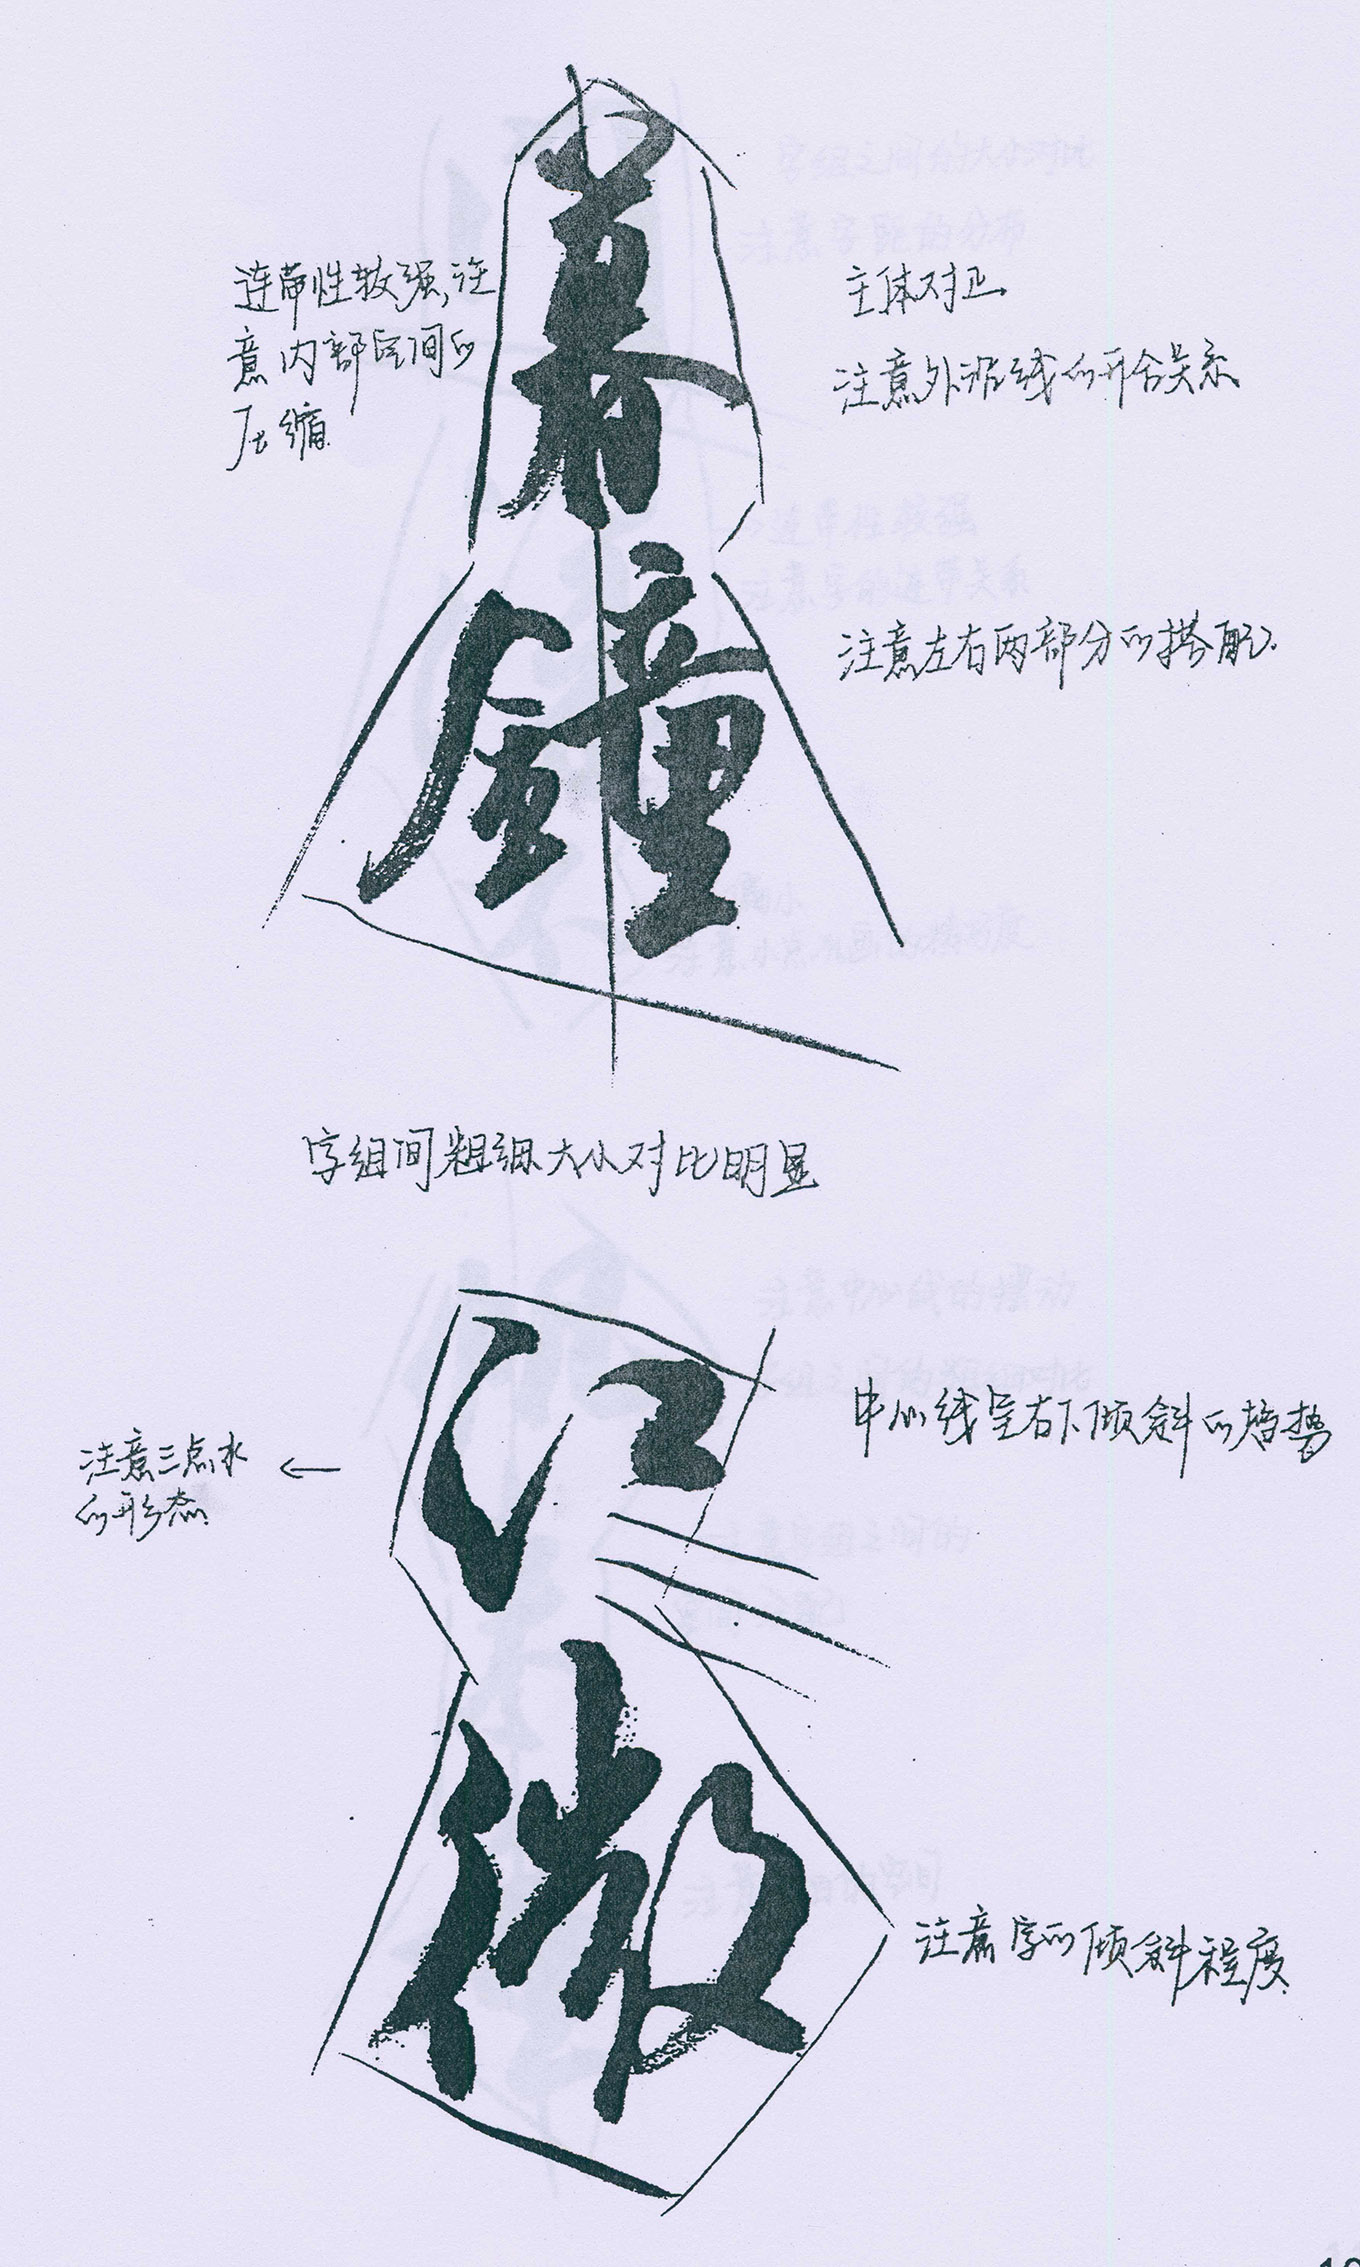 连带性较强,注
意内部空间的
压缩
主体对正
注意外沿线的开合关系
鐘
注意左右两部分的搭配.
字组间粗细大小对比明显
江
中心线呈右下倾斜的趋势
注意三点水
的形态
微
注意字的倾斜程度